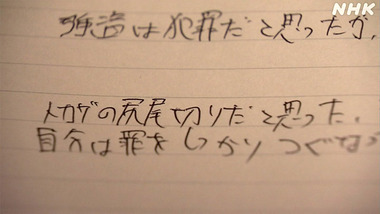 NHK
強盗は犯罪だと思ったが、
トカゲの尻尾切りだと思った。
自分は罪をしっかりつぐなう